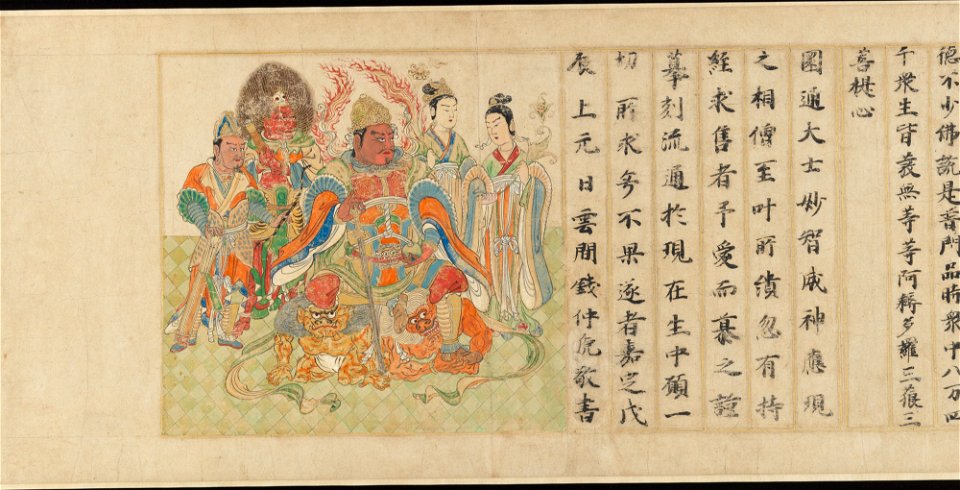 德不少佛說是普門品時衆中八万四
千衆生皆發無等等阿耨多羅三藐三
菩提心
圓通大士妙智威神應現
之相傳至叶所繽忽有持
經求售者予愛而慕之謹
摹刻流通於現在生中願一
切所求每不果遂者嘉定戊
辰上元日雲間錢仲虎敬書